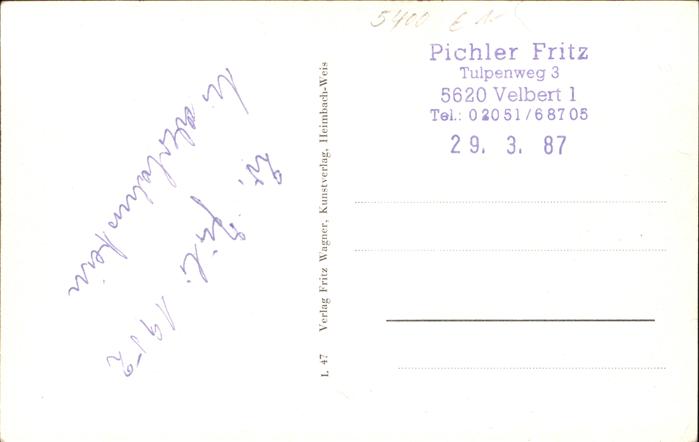 5400
Pichler Fritz
Tulpenweg 3
5620 Velbert 1
Tel.: 02051/68705
29. 3. 87
L 47 Verlag Fritz Wagner, Kunstverlag, Heimbach-Weis
Juli 1952